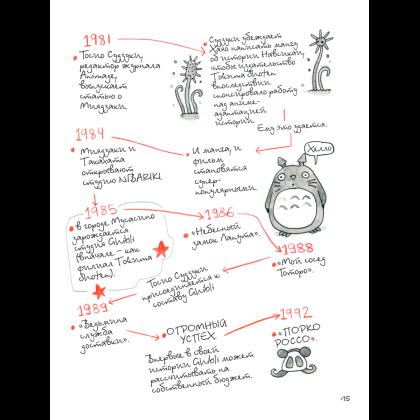 1981
Тосио Судзуки,
редактор журнала
Animage,
выпускает
статью о
Миядзаки.
Судзуки убеждает
Хаяо написать мангу
об истории Навсикаи,
чтобы издательство
Tokuma Shoten
впоследствии
спонсировало работу
над аниме-
адаптацией
истории.
Ему это удается.
1984
Миядзаки и
Такахата
открывают
студию NIBARIKI.
И манга, и
фильм
становятся
супер-
популярными.
Хелло
1985
в городе Мусасино
зарождается
студия Ghibli
(вначале – как
филиал Tokuma
Shoten).
1986
«Небесный
замок Лапута».
1988
«Мой сосед
Тоторо».
Тосио Судзуки
присоединяется к
составу Ghibli
1989
«Ведьмина
служба
доставки».
ОГРОМНЫЙ
УСПЕХ
Впервые в своей
истории Ghibli может
рассчитывать на
собственный бюджет.
1992
«ПОРКО
РОССО».
15